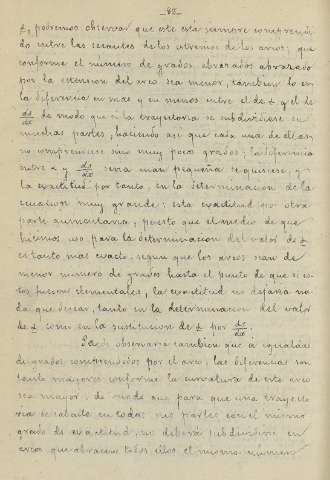 — 82 —
α, podremos observar que este está siempre comprendi-
do entre las secantes de los extremos de los arcos; que
conforme el número de grados abrazados abrazado
por la extension del arco sea menor, tambien lo era
la diferencia en mas y en menos entre el de α y el de
ds/dx de modo que si la trayectoria se subdividiese en
muchas partes, haciendo asi que cada una de ellas
no comprendiese sino muy pocos grados; la diferencia
entre α y ds/dx seria mas pequeña si quisiese, y
la exactitud por tanto, en la determinacion de la
ecuacion muy grande; esta exactitud por otra
parte aumentaria, puesto que el medio de que
hicimos uso para la determinacion del valor de α
es tanto mas exacto, segun que los arcos sean de
menor numero de grados hasta el punto de que si es-
tos fuesen elementales, la exactitud no dejaria na-
da que desear, tanto en la determinacion del valor
de α como en la sustitucion de α por ds/dx.
observaria tambien que a igualdad
de grados comprendidos por el arco, las diferencias son
tanto mayores conforme la curvatura de este arco
sea mayor; de modo que para que una trayecto-
ria en todas sus partes con el mismo
grado de exactitud, no deberá subdividirse en
arcos que abracen todos ellos el mismo número